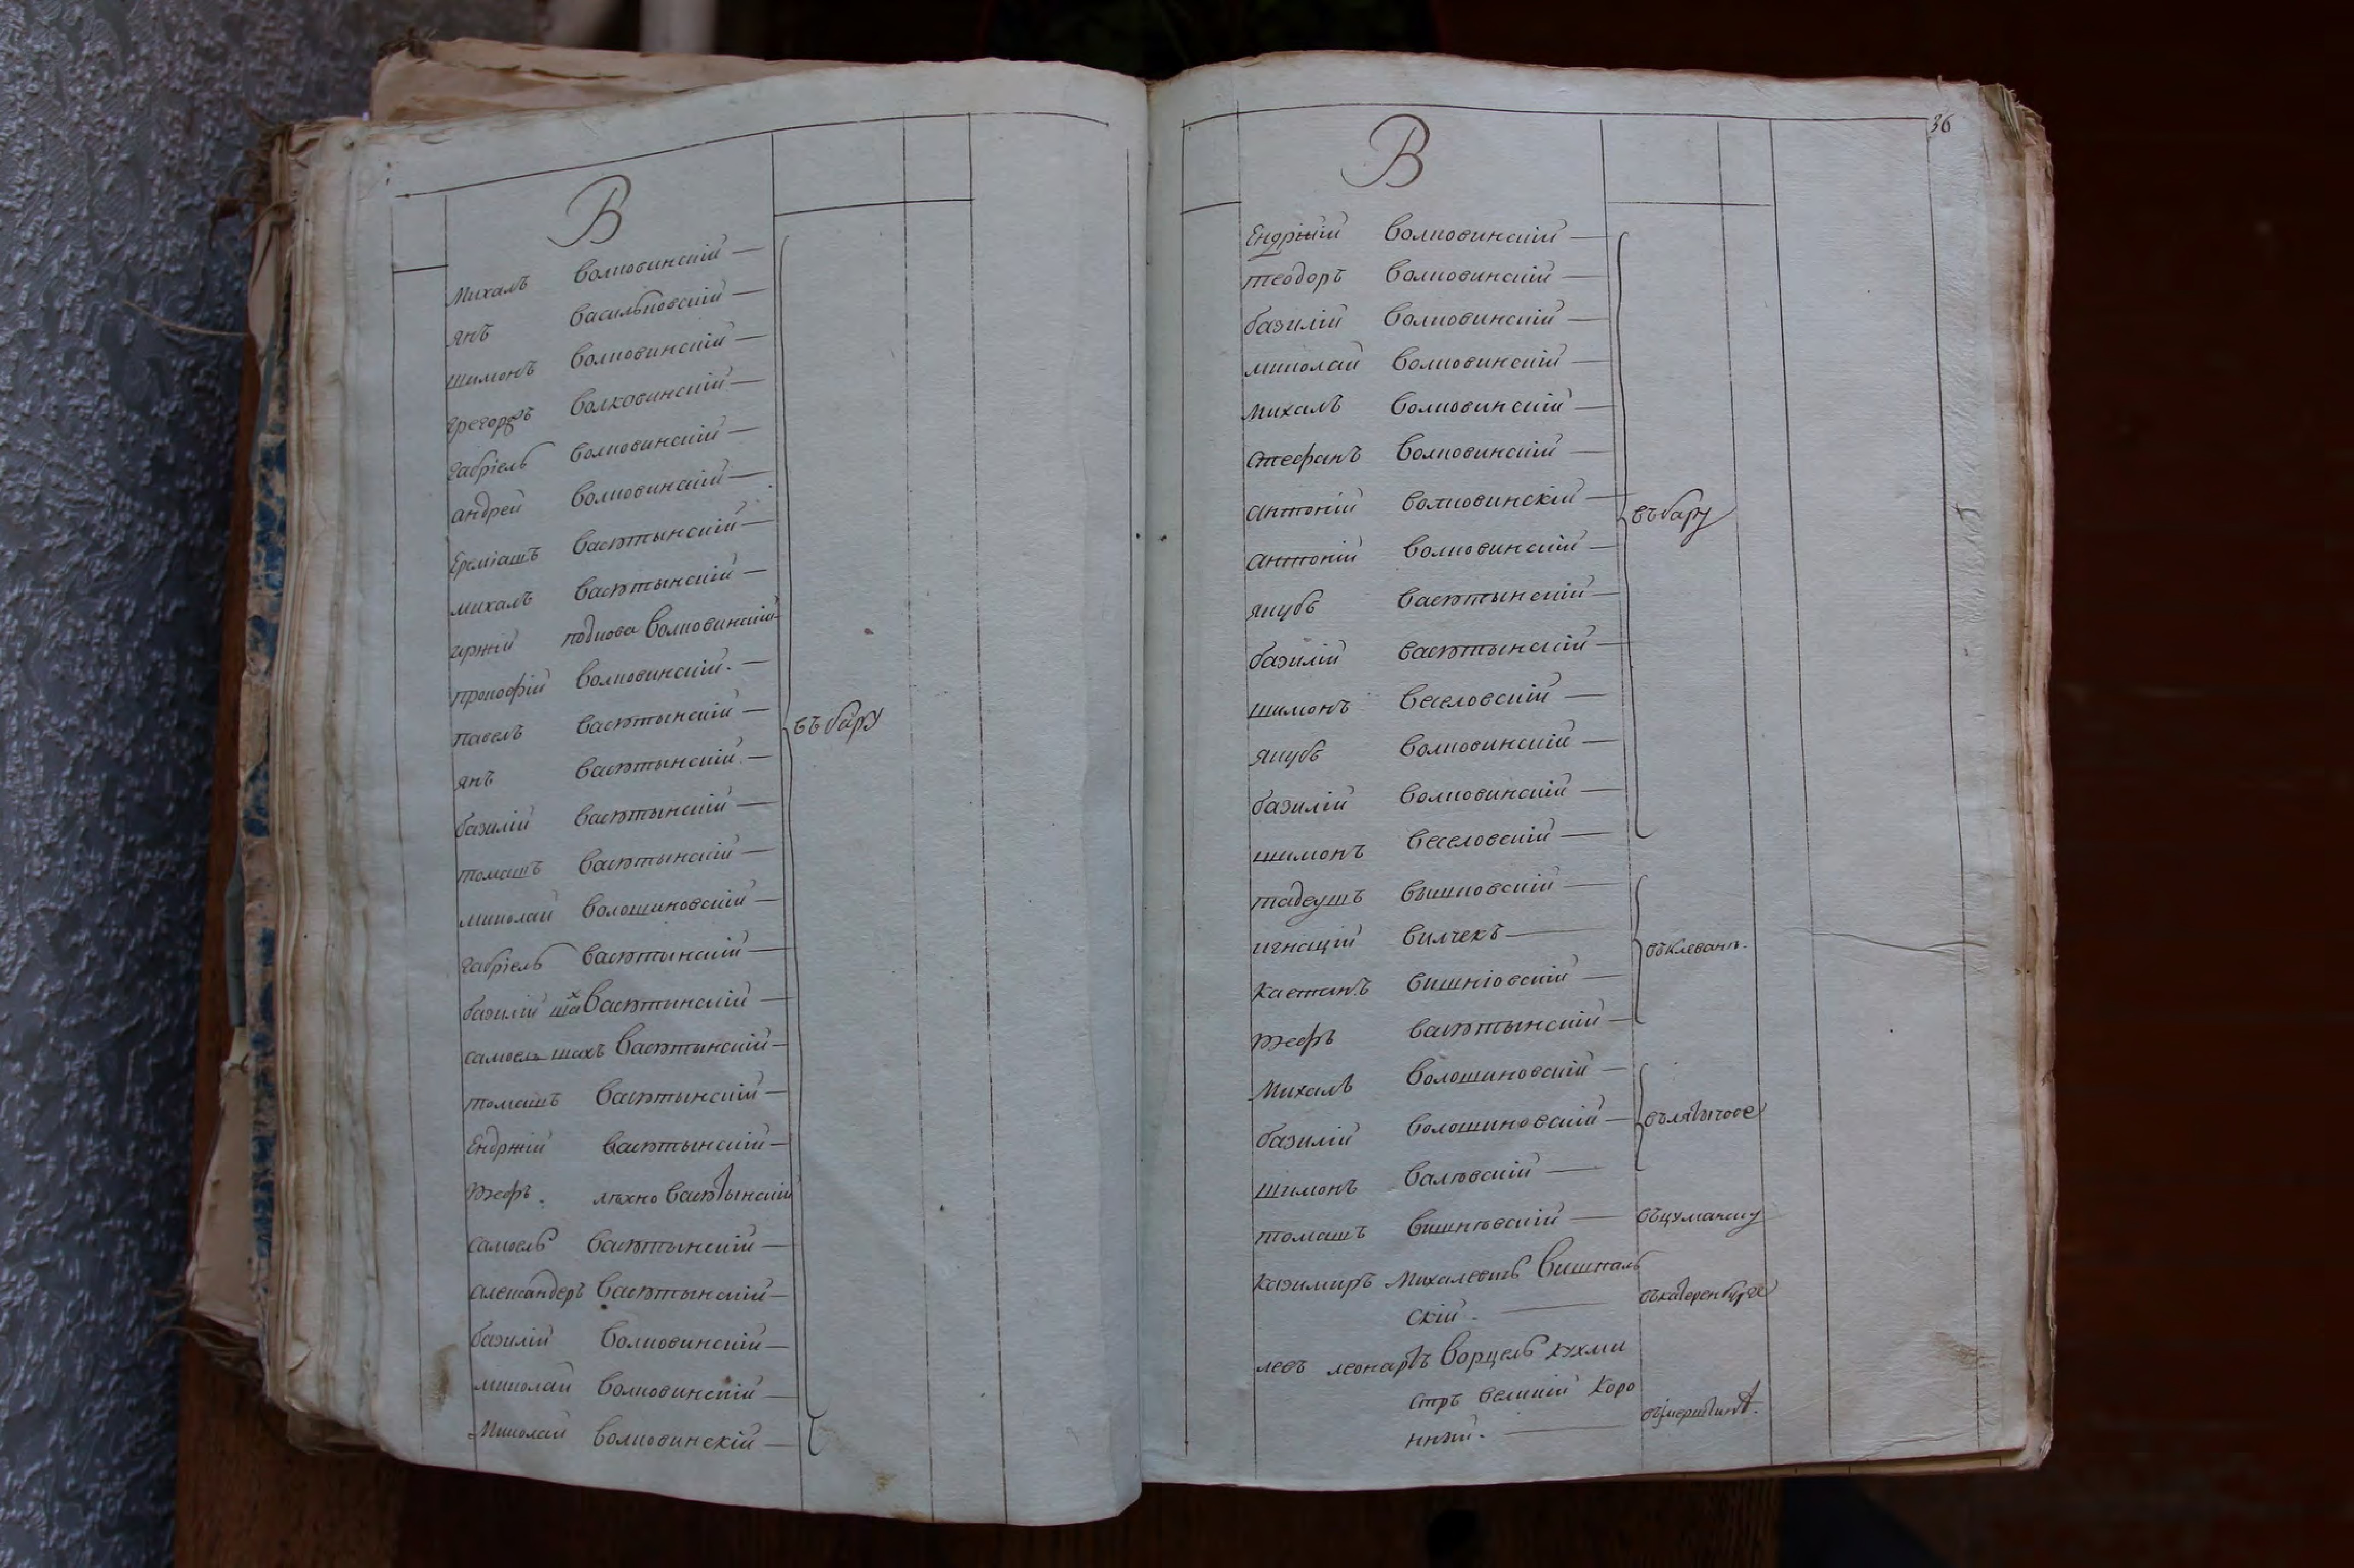 В
Михалъ Волковинскій —
Янъ Васильковскій —
Шимонъ Волковинскій —
Грегоръ Волковинскій —
Габріель Волковинскій —
Андрей Волковинскій —
Ереміашъ Васютынскій —
Михалъ Васютынскій —
Волковинскій
Прокофій Волковинскій. —
Павелъ Васютынскій —
Янъ Васютынскій —
Базилій Васютынскій —
въ бару
Томашъ Васютынскій —
Миколай Волошиновскій —
Габріель Васютынскій —
Базилій шах Васютинскій —
Самоель шахъ Васютынскій —
Томашъ Васютынскій —
Ендржій Васютынскій —
Юзефъ. ляхно Васютынскій
Самоель Васютынскій —
Александеръ Васютынскій —
Базилій Волковинскій —
Миколай Волковинскій —
Миколай Волковинскій —
36
В
Ендрій Волковинскій —
Теодоръ Волковинскій —
Базилій Волковинскій —
Миколай Волковинскій —
Михалъ Волковинскій —
Стефанъ Волковинскій —
Антоній Волковинскій —
въ бару
Антоній Волковинскій —
Якубъ Васютынскій —
Базилій Васютынскій —
Шимонъ Веселовскій —
Якубъ Волковинскій —
Базилій Волковинскій —
Шимонъ Веселовскій —
Тадеушъ Вышковскій —
Игнацій Вилчекъ —
въ Клевань.
Каетанъ Вишніовскій —
Юзефъ Васютынскій —
Михалъ Волошиновскій —
Базилій Волошиновскій —
въ лятычове
Шимонъ Валювскій —
Томашъ Вишнювскій — въ цуманску
Казимиръ Михалевичъ Вишталь
скій. — въ катеренбурге
Левъ Леонардъ Ворцель кухми
стръ великій коро
нный. —